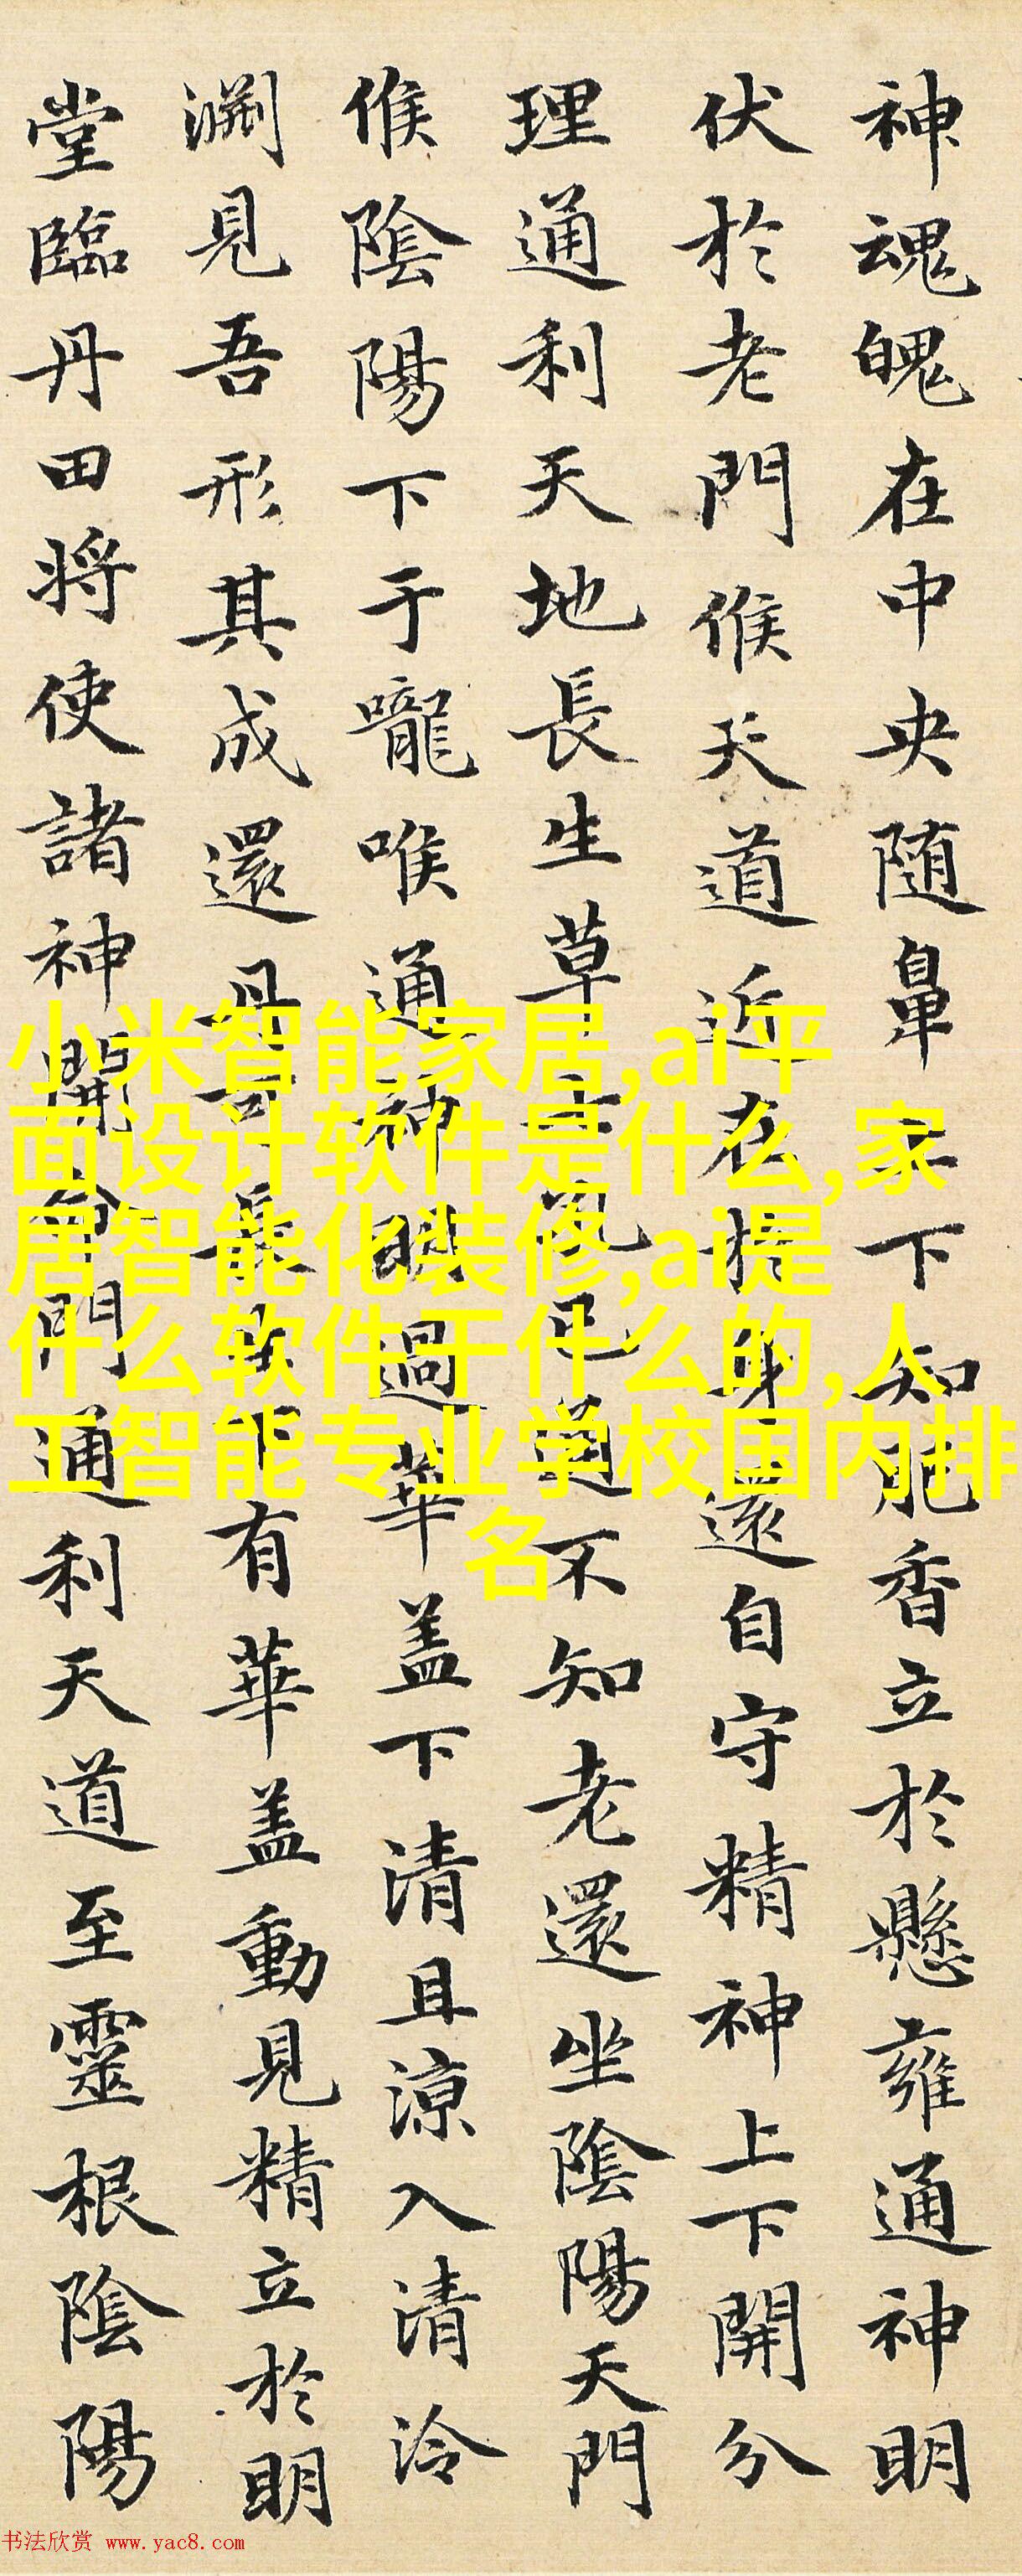 神魂魄在中央随鼻上下知肥香立於懸雍通神明
伏於老門候天道近在於身還自守精神上下開分
理通利天地長生草七竅已通不知老還坐陰陽天門
候陰陽下于嚨喉通神明過華盖下清且涼入清泠
渊見吾形其成還丹可長生下有華盖動見精立於明
堂臨丹田将使諸神開命門通利天道至靈根陰陽
小米智能家居,ai平
面设计软件是什么,家
居智能化装修,ai是
什么软件干什么的,人
工智能专业学校国内排
名
书法欣赏 www.yac8.com